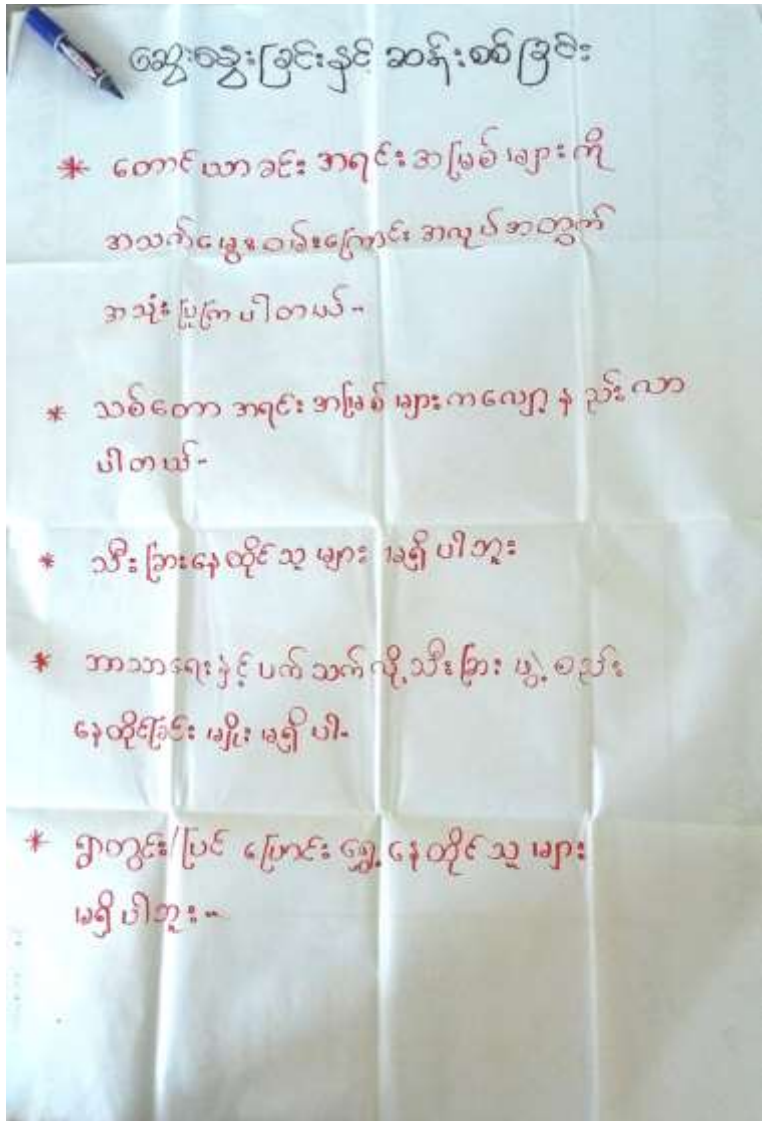 ဆွေးနွေးခြင်းနှင့် ဆန်းစစ်ခြင်း
* တောင်ယာခင်း အရင်းအမြစ်များကို
အသက်မွေးဝမ်းကြောင်း အလုပ်အတွက်
အသုံးပြုကြပါတယ်-
* သစ်တော အရင်းအမြစ်များကလျော့နည်းလာ
ပါတယ်-
* သီးခြားနေထိုင်သူများ မရှိပါဘူး
* ဘာသာရေးနှင့်ပက်သက်လို့သီးခြား ဖွဲ့စည်း
နေထိုင်ခြင်းမျိုးမရှိပါ-
* ရွာတွင်း/ပြင် ပြောင်းရွှေ့နေထိုင်သူများ
မရှိပါဘူး-